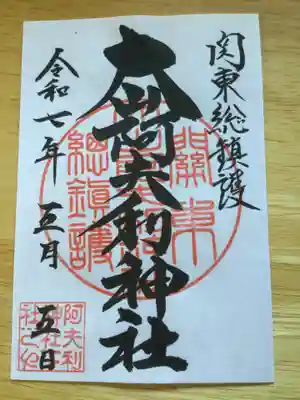 関東総鎮護
大山阿夫利神社
令和七年 五月 五日
關東
總鎮護
阿夫利
神社下
社之印